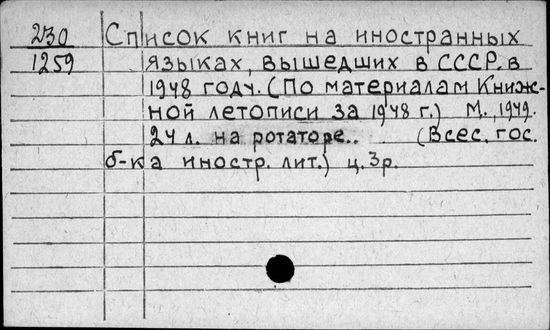 230 Список книг на иностранных
1259 языках, вышедших в СССР. в
1948 году. (По материалам Книж-
ной летописи за 1948 г.) М., 1949.
24 л. на ротаторе.. (Всес. гос.
б-ка иностр. лит.) ц. 3р.